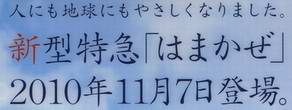 人にも地球にもやさしくなりました。
新型特急「はまかぜ」
2010年11月7日登場。